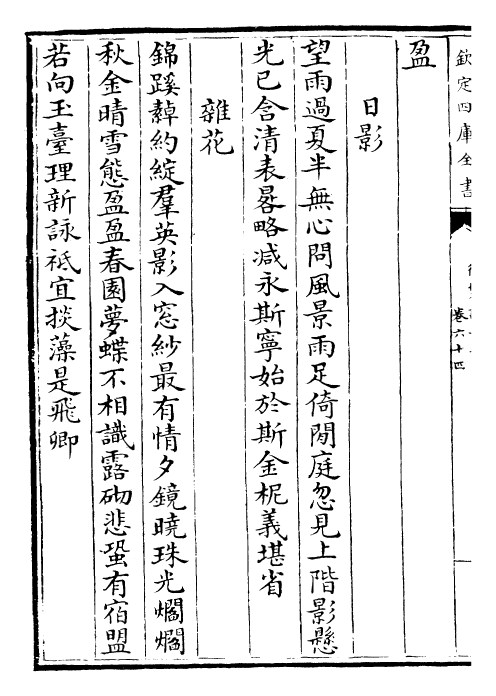 欽定四庫全書
卷六十四
盈
日影
望雨過夏半無心問風景雨足倚閒庭忽見上階影懸
光已含清表晷略減永斯寧始於斯金柅義堪省
雜花
錦蹊䔢約綻羣英影入窓紗最有情夕鏡曉珠光爛爛
秋金晴雪態盈盈春園夢蝶不相識露砌悲蛩有宿盟
若向玉臺理新詠祗宜掞藻是飛卿